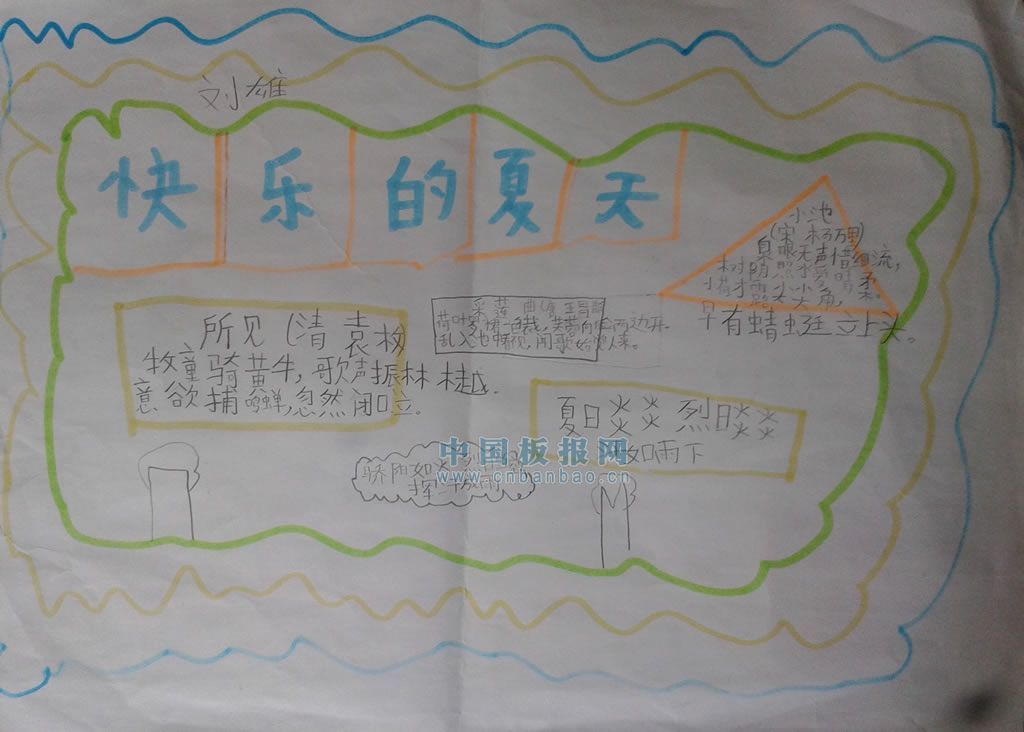 刘雄
快乐的夏天
小池
(宋 杨万里)
泉眼无声惜细流,
树阴照水爱晴柔。
小荷才露尖尖角,
早有蜻蜓立上头。
采莲曲(唐 王昌龄
荷叶罗裙一色裁,芙蓉向脸两边开。
乱入池中看不见,闻歌始觉人来。
所见(清 袁枚
牧童骑黄牛,歌声振林樾.
意欲捕鸣蝉,忽然闭口立.
夏日炎炎 烈日炎炎
如雨下
骄阳如火
挥汗如雨
中国板报网
www.cnbanbao.cn